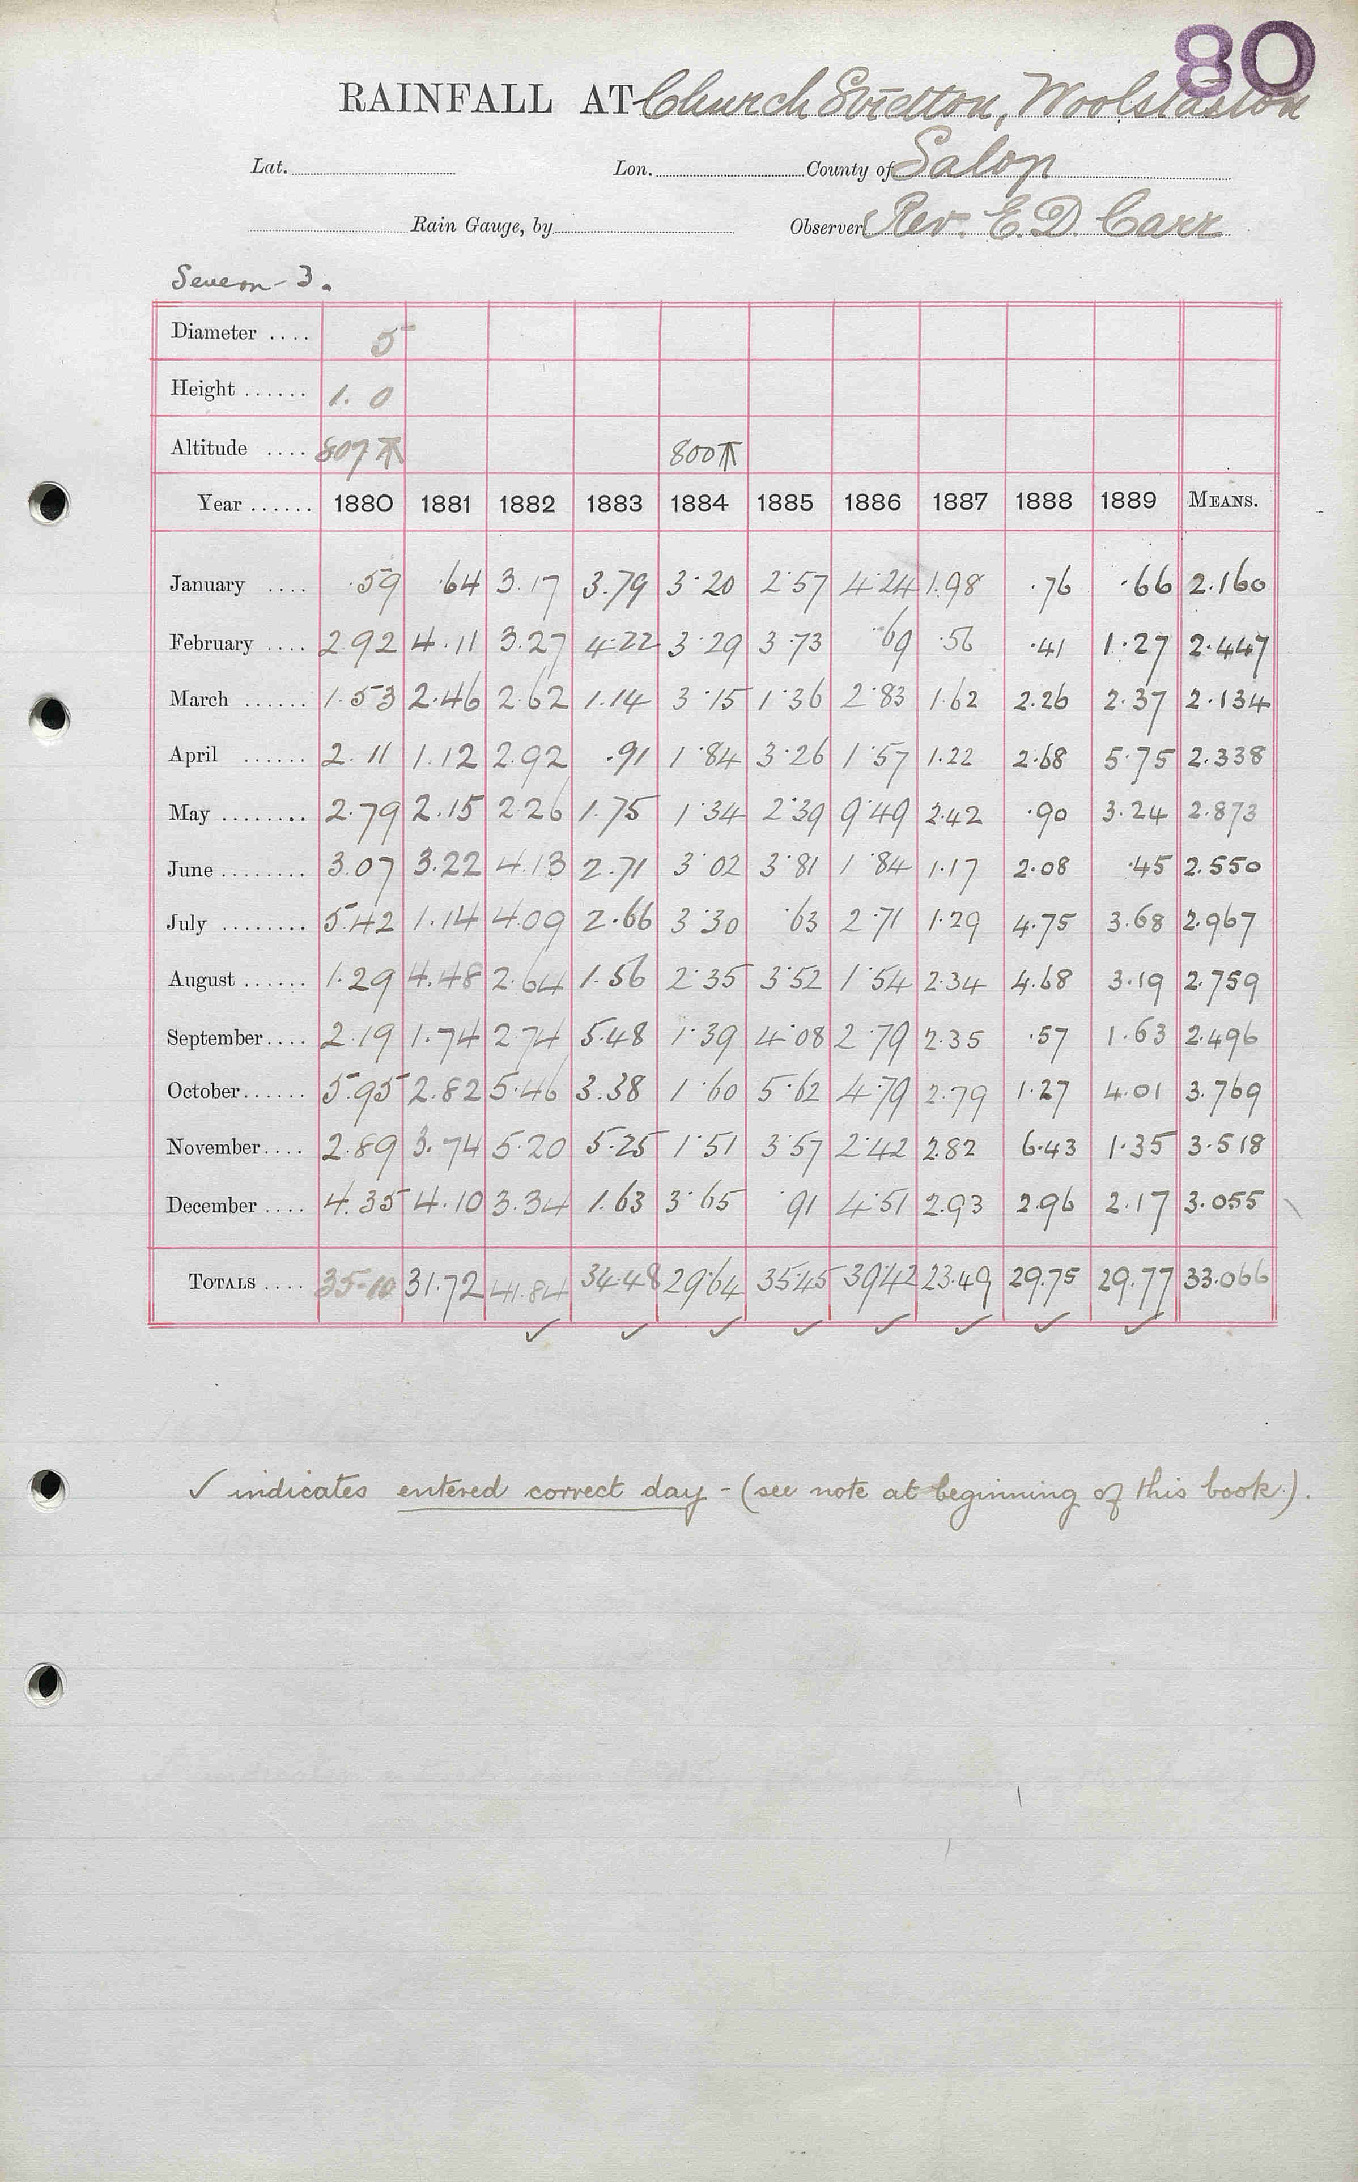 80
RAINFALL AT Church Stretton, Woolstaston
Lat. Lon. County of Salop
Rain Gauge, by Observer Rev. E. D. Carr
Severn - 3.
Diameter .... 5
Height ...... 1. 0
Altitude .... 807 800
Year ...... 1880 1881 1882 1883 1884 1885 1886 1887 1888 1889 MEANS.
January .... .59 .64 3.17 3.79 3.20 2.57 4.24 1.98 .76 .66 2.160
February .... 2.92 4.11 3.27 4.22 3.29 3.73 .69 .56 .41 1.27 2.447
March ...... 1.53 2.46 2.62 1.14 3.15 1.36 2.83 1.62 2.26 2.37 2.134
April ...... 2.11 1.12 2.92 .91 1.84 3.26 1.57 1.22 2.68 5.75 2.338
May ........ 2.79 2.15 2.26 1.75 1.34 2.39 9.49 2.42 .90 3.24 2.873
June ........ 3.07 3.22 4.13 2.71 3.02 3.81 1.84 1.17 2.08 .45 2.550
July ........ 5.42 1.14 4.09 2.66 3.30 .63 2.71 1.29 4.75 3.68 2.967
August ...... 1.29 4.48 2.64 1.56 2.35 3.52 1.54 2.34 4.68 3.19 2.759
September.... 2.19 1.74 2.74 5.48 1.39 4.08 2.79 2.35 .57 1.63 2.496
October...... 5.95 2.82 5.46 3.38 1.60 5.62 4.79 2.79 1.27 4.01 3.769
November.... 2.89 3.74 5.20 5.25 1.51 3.57 2.42 2.82 6.43 1.35 3.518
December .... 4.35 4.10 3.34 1.63 3.65 .91 4.51 2.93 2.96 2.17 3.055
TOTALS .... 35.10 31.72 41.84 34.48 29.64 35.45 39.42 23.49 29.75 29.77 33.066
✓ ✓ ✓ ✓ ✓ ✓ ✓ ✓
✓ indicates entered correct day - (see note at beginning of this book).